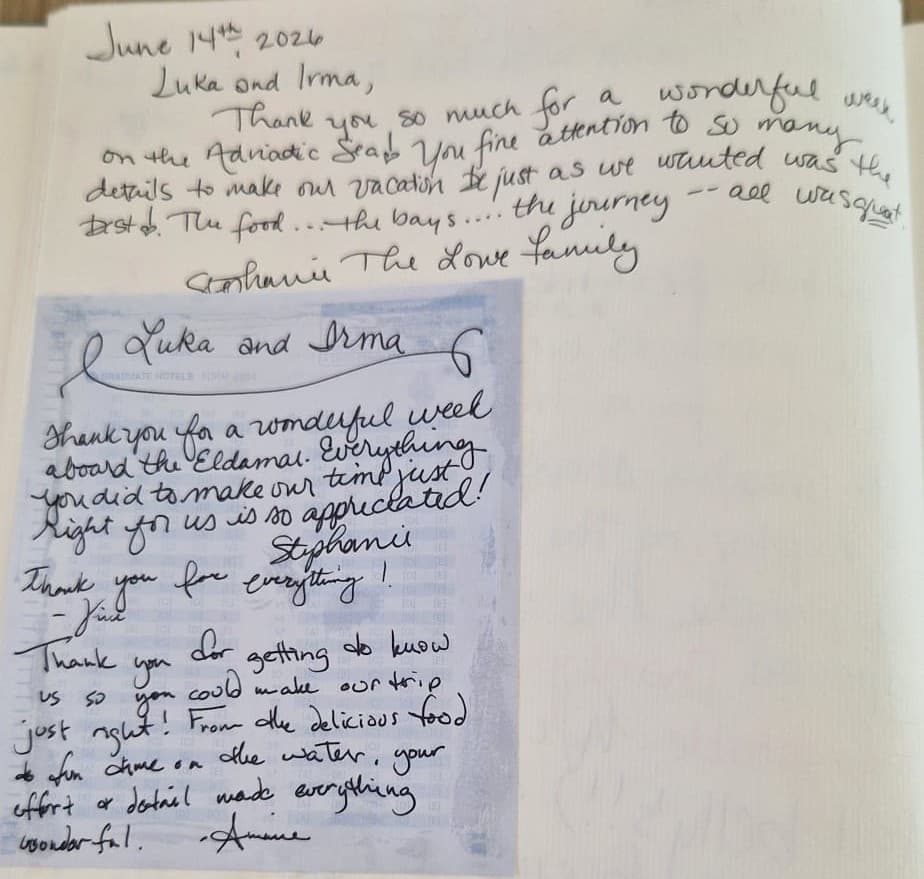 June 14th, 2026
Luka and Irma,
Thank you so much for a wonderful week
on the Adriadic Sea. You fine attention to so many
details to make our vacation just as we wanted was the
best. The food...the bays.... the journey -- all was great
Stephanie The Lowe family
Luka and Irma
GRADUATE HOTELS
Thank you for a wonderful week
aboard the Eldamar. Everything
you did to make our time just
right for us is so appreciated!
Stephanie
Thank you for everything!
Thank you for getting to know
us so you could make our trip
just right! From the delicious food
to fun time on the water, your
effort & detail made everything
wonderful.